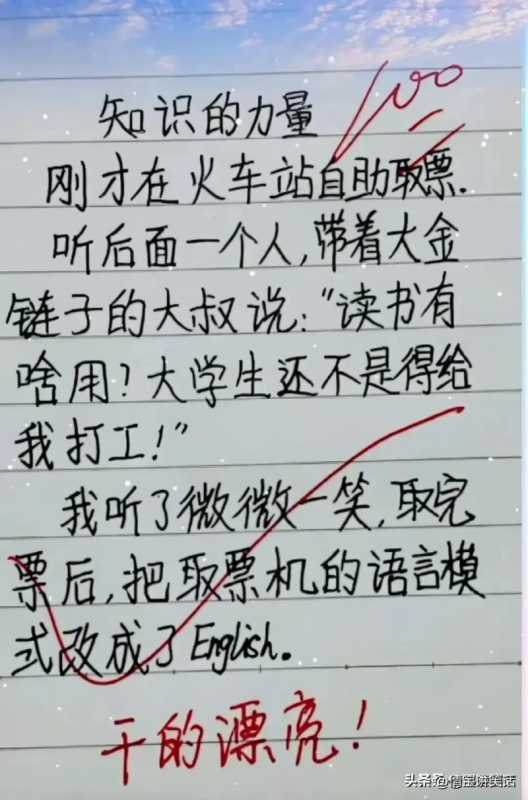 100
知识的力量
刚才在火车站自助取票.
听后面一个人,带着大金
链子的大叔说:"读书有
啥用?大学生还不是得给
我打工!"
我听了微微一笑,取完
票后,把取票机的语言模
式改成了English。
干的漂亮!